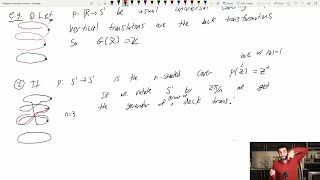 e.g. ① Let p: ℝ → S¹ be usual universal cover
vertical translations are the deck transformations
So G(X̃) ≅ ℤ.
② If p: S¹ → S¹ is the n-sheeted cover p(z) = zⁿ
z∈ℂ w/ |z|=1.
If we rotate S¹ by 2π/n we get
the generator of group of n deck trans.
n=3